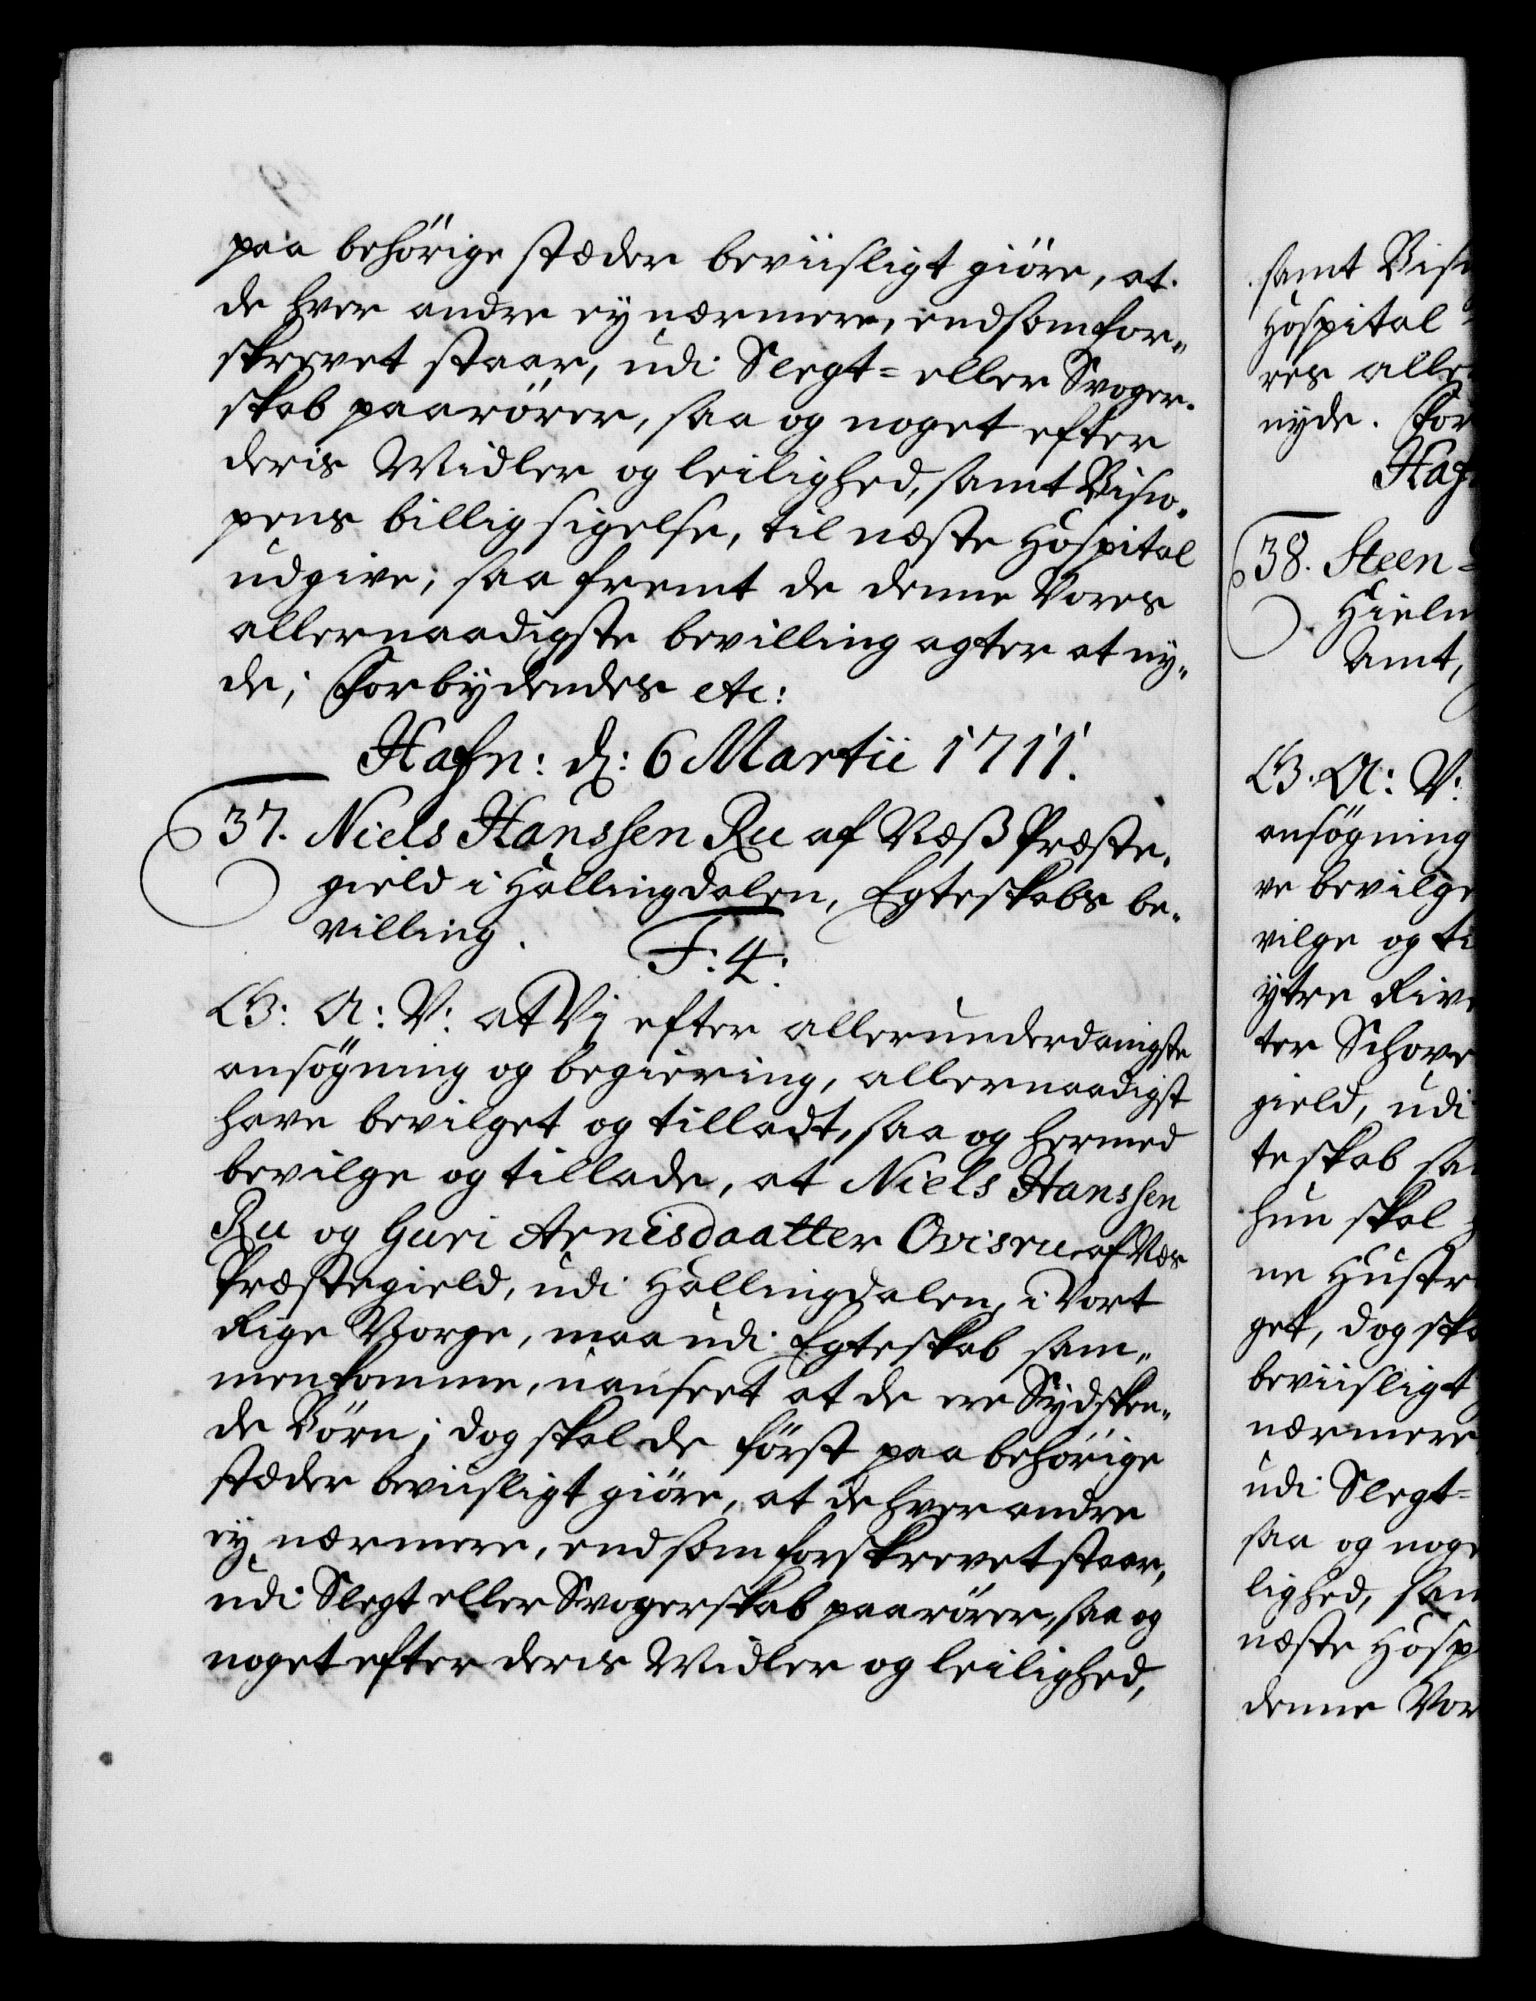 paa behörige stæder beviisligt giöre, at
de hver andre ey nærmere, end som for„
skrevet staar, udi Slegt= eller Svoger„
skab paarörer, saa og noget efter
deris Midler og leilighed, samt Bisco„
pens billig sigelse, til næste Hospital
udgive, saa fremt de denne Vores
allernaadigste bevilling agter at ny„
de; Forbydendes etc:
Hafn: d: 6 Martii 1711.
37. Niels Hanssen Ru af Næß Præste„
gield i Hallingdalen, Egteskabs be„
villing.
F: 4:
G: A: V: at Vi efter allerunderdanigste
ansögning og begiering, allernaadigst
have bevilget og tilladt, saa og hermed
bevilge og tillade, at Niels Hanssen
Ru og Guri Arnesdaatter Ovisru af Næs
Præstegield, udi Hallingdalen, i Vort
Rige Norge, maa udi Egteskab sam„
menkomme, uanseet at de ere Sydsken„
de Börn; dog skal de först paa behörige
stæder beviisligt giöre, at de hver andre
ey nærmere, end som forskrevet staar,
udi Slegt eller Svogerskab paarörer, saa og
noget efter deris Midler og leilighed,
samt Bis
Hospital
res aller
nyde. For
Haf
38. Steen
Hiel
Amt,
G: A: V:
ansögning
ve bevilge
vilge og ti
ytre Riv
ter Schov
gield, udi
teskab sa
hun skal
ne Hustr
get, dog ska
beviisligt
nærmere
udi Slegt=
saa og noge
lighed, sam
næste Hosp
denne Vor